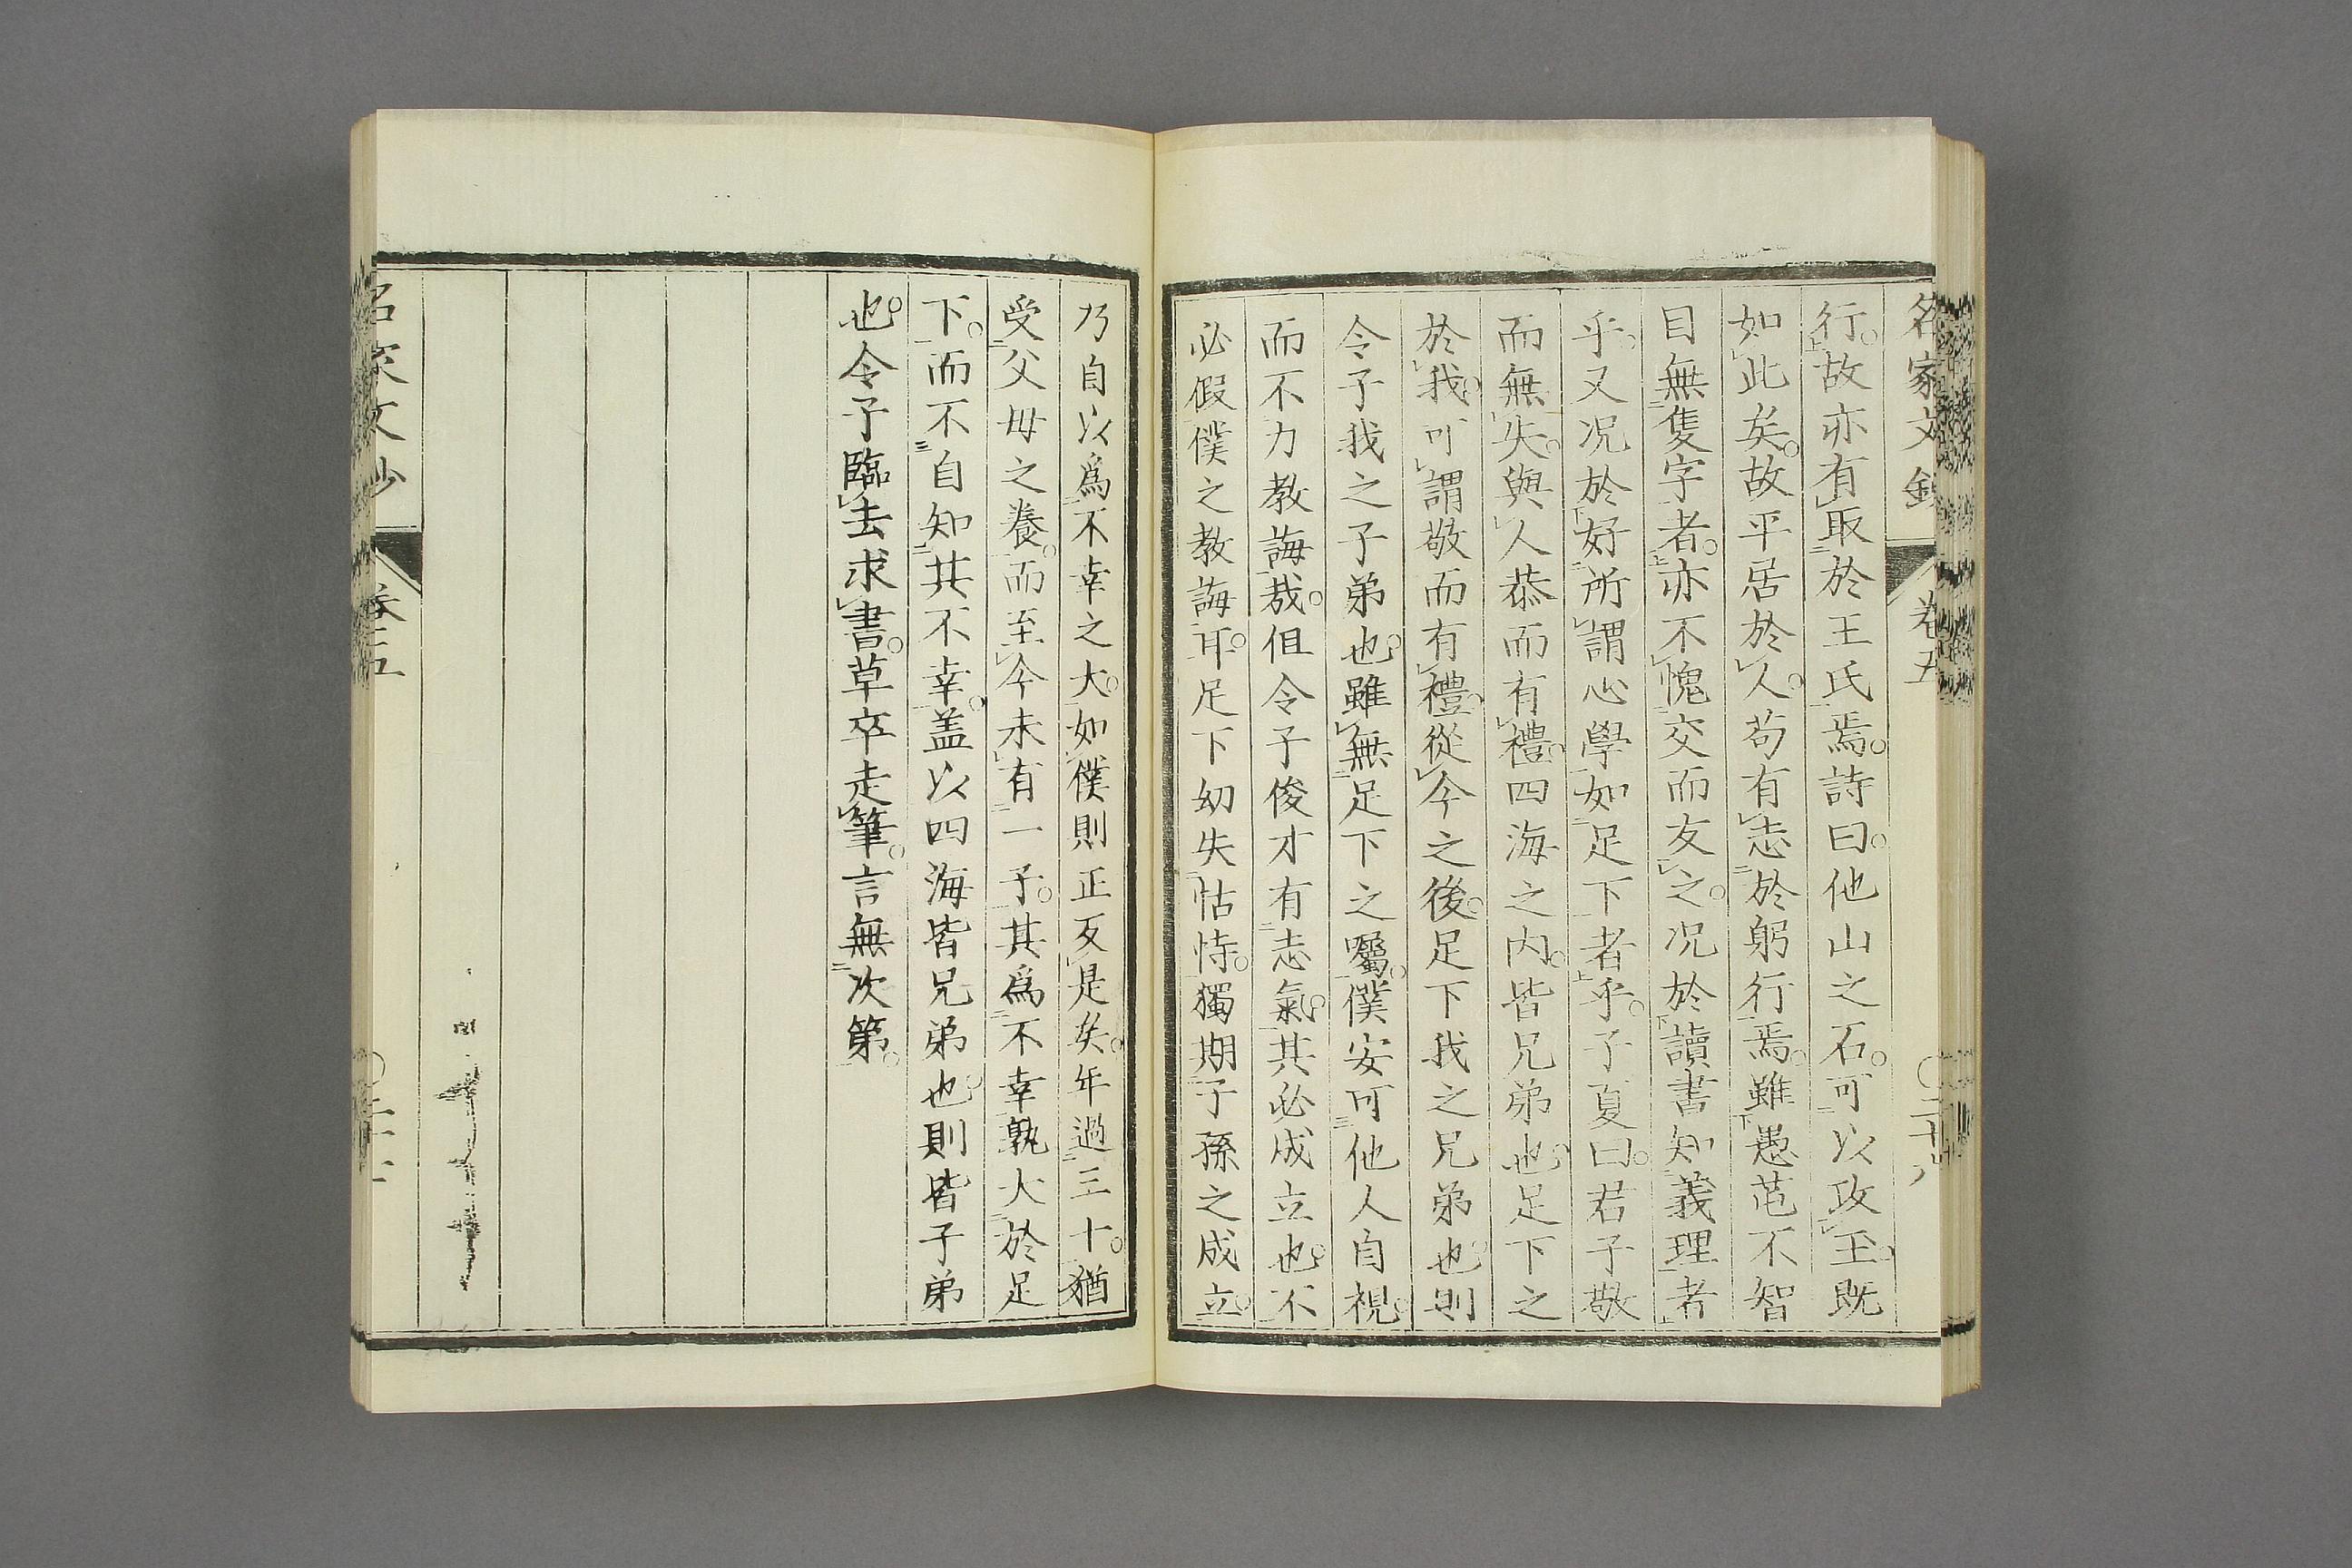 名家文鈔 卷五 〇二十八
行。故亦有取於王氏焉。詩曰。他山之石。可以攻玉。既
如此矣。故平居於人。苟有志於躬行焉。雖愚芚不智
目無隻字者。亦不愧交而友之。况於讀書知義理者
乎。又况於好所謂心學如足下者乎。子夏曰。君子敬
而無失。與人恭而有禮。四海之内。皆兄弟也。足下之
於我。可謂敬而有禮。從今之後。足下我之兄弟也。則
令子我之子弟也。雖無足下之囑。僕安可他人自視。
而不力教誨哉。但令子俊才有志氣。其必成立也。不
必假僕之教誨耳。足下幼失怙恃。獨期子孫之成立。
乃自以爲不幸之大。如僕則正反是矣。年過三十。猶
受父母之養。而至今未有一子。其爲不幸孰大於足
下。而不自知其不幸。盖以四海皆兄弟也。則皆子弟
也。令子臨去求書。草卒走筆。言無次第。
名家文鈔 卷五